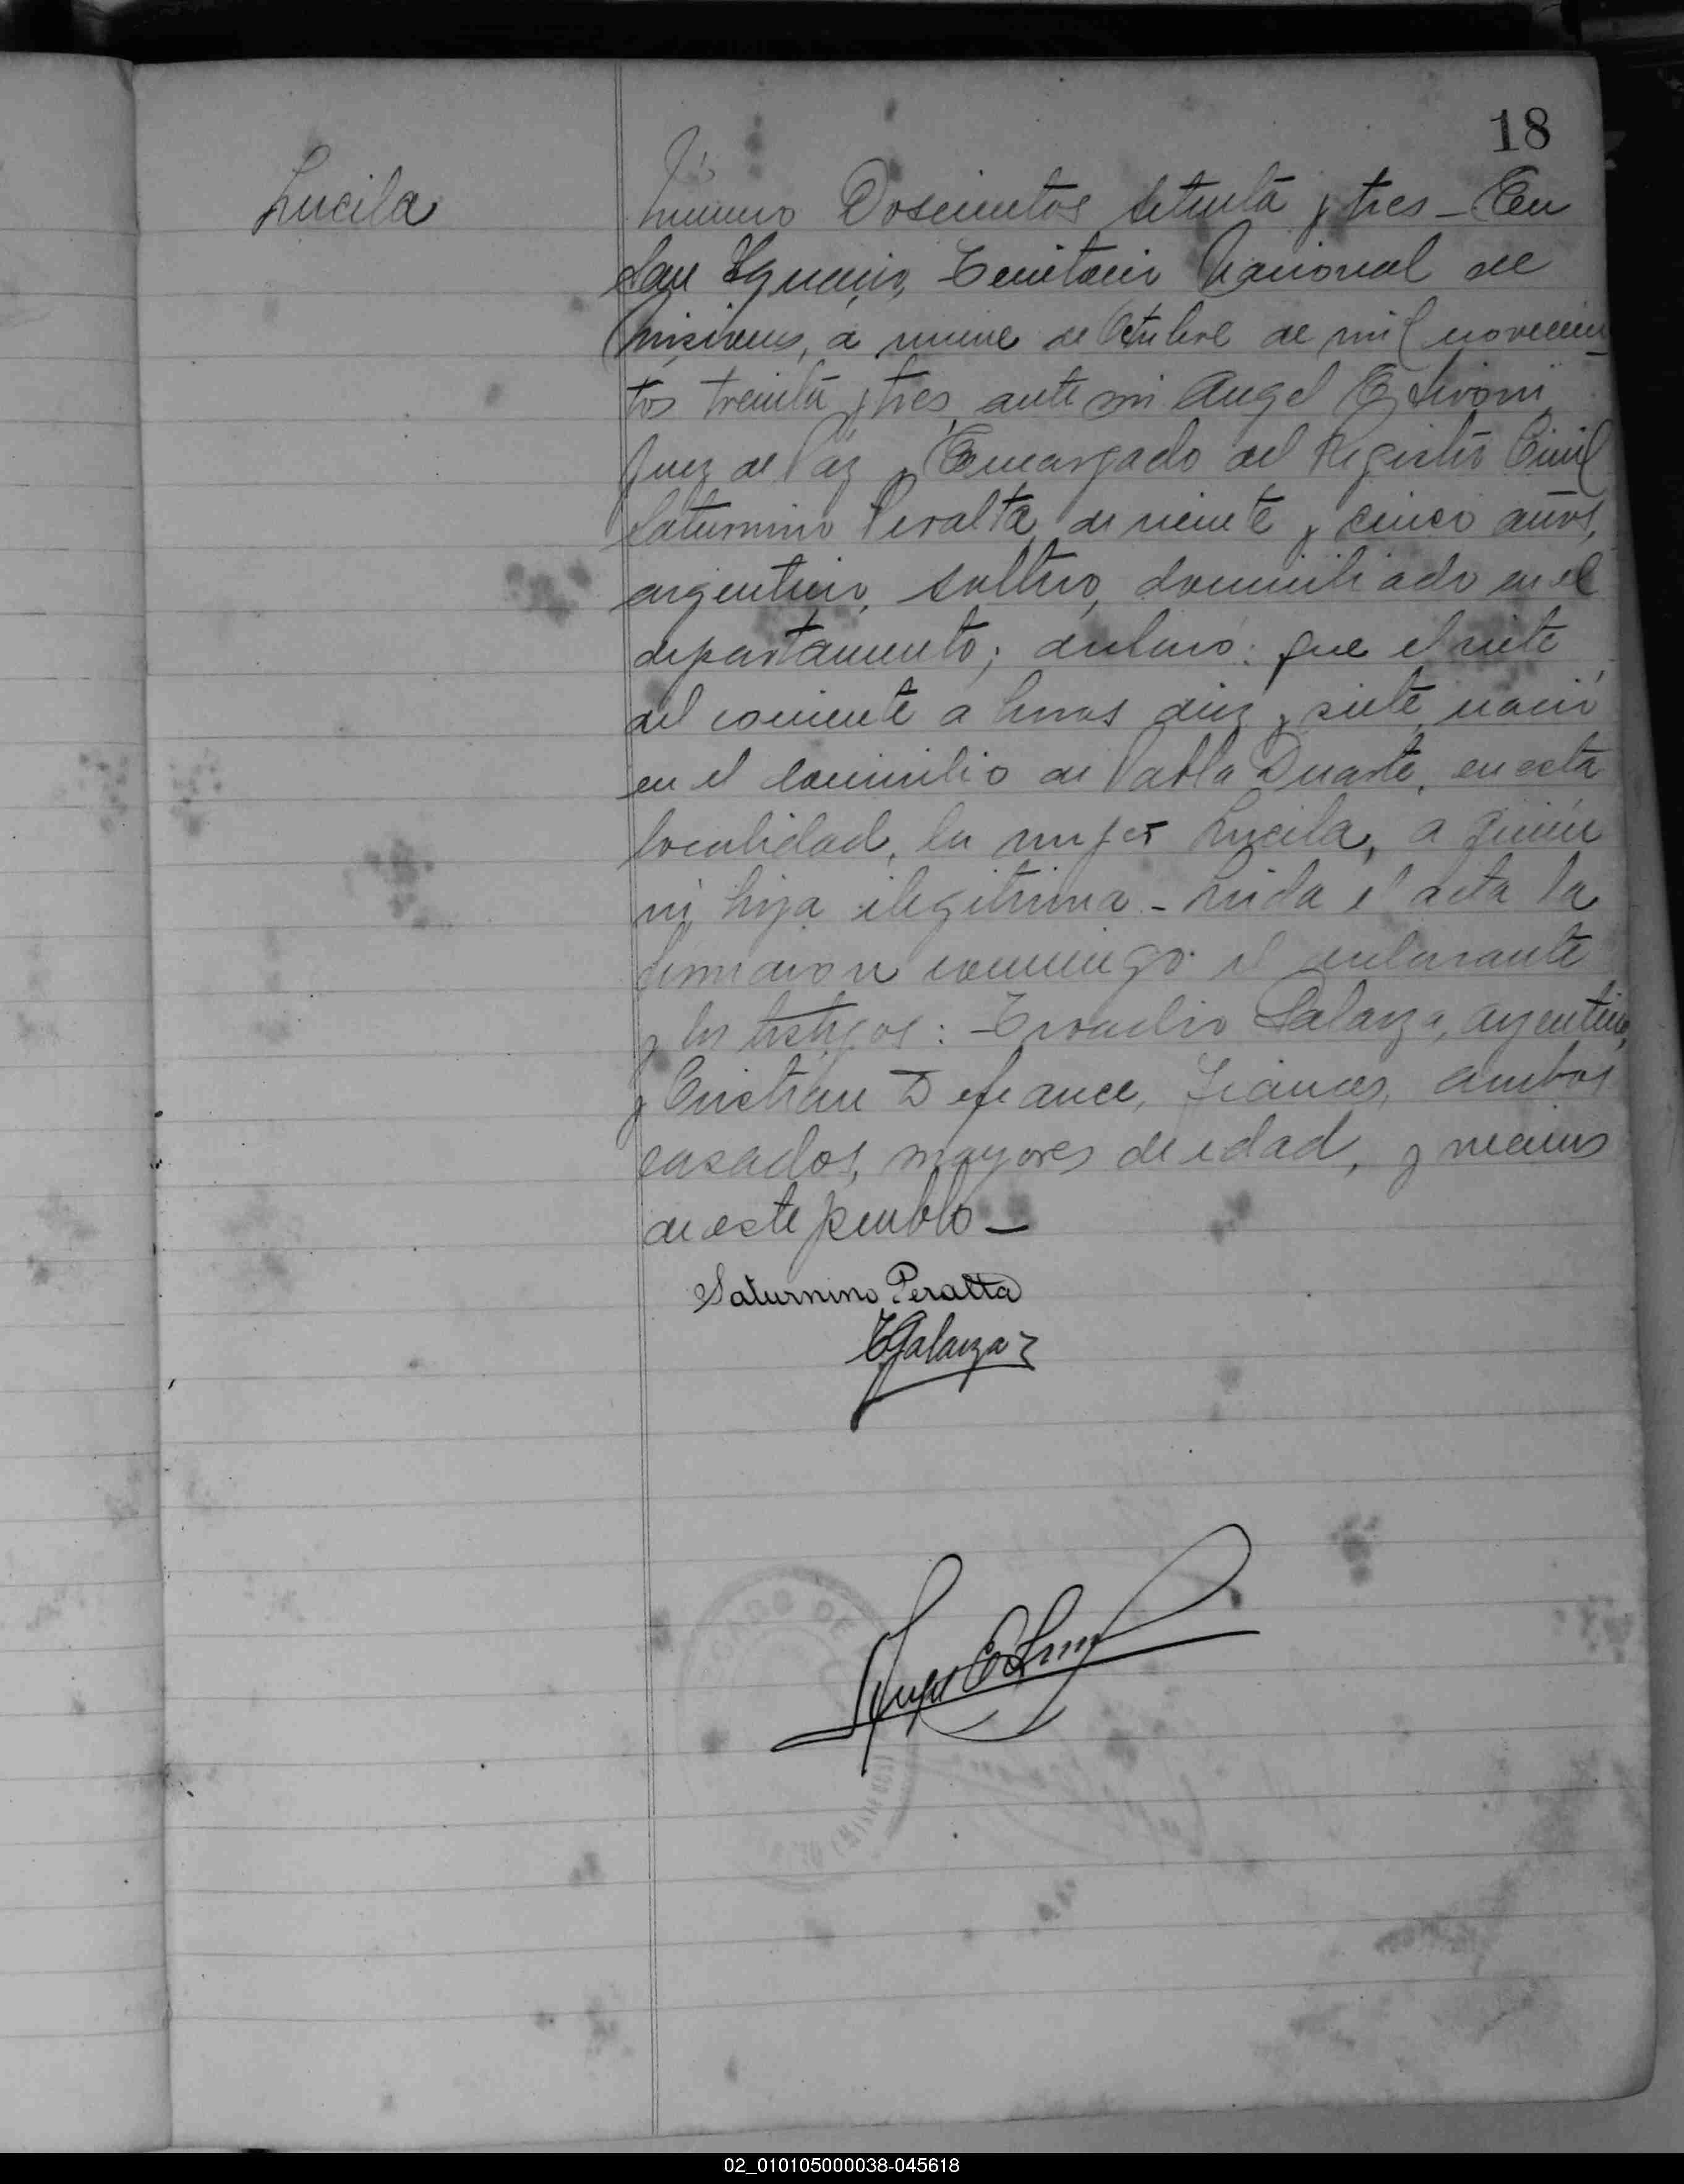 18
Lucila
Número Doscientos setenta y tres - En
San Ignacio, Territorio Nacional de
Misiones, a nueve de Octubre de mil novecien
tos treinta y tres, ante mi Angel E.
Juez de Paz y Encargado del Registro Civil
Saturnino Peralta, de veinte y cinco años,
argentino, soltero, domiciliado en el
departamento; declaró: que el siete
del corriente a horas diez y siete, nació
en el domicilio de Pabla Duarte, en esta
localidad, la mujer Lucila, a quien
vi, hija ilegitima - Leida el acta la
firmaron conmigo el declarante
y los testigos: Galarza, argentino,
y Cristian Defrance, frances, ambos
casados, mayores de edad, y vecinos
de este pueblo -
Saturnino Peralta
Galarza
02_010105000038-045618